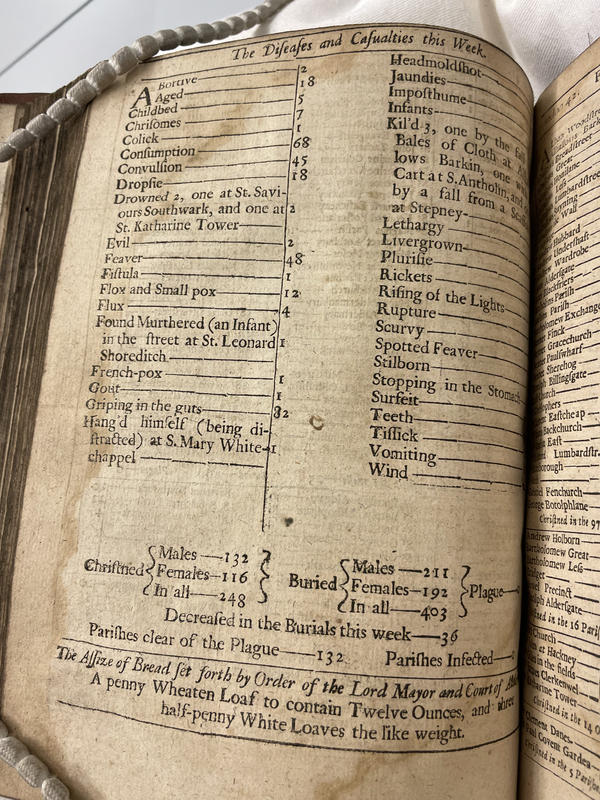 The Diſeaſes and Caſualties this Week.
ABortive 2
Aged 18
Childbed 5
Chriſomes 7
Colick 1
Conſumption 68
Convulſion 45
Dropſie 18
Drowned 2, one at St. Savi-
ours Southwark, and one at 2
St. Katharine Tower
Evil 2
Feaver 48
Fiſtula 1
Flox and Small pox 12
Flux 4
Found Murthered (an Infant)
in the ſtreet at St. Leonard 1
Shoreditch
French-pox 1
Gout 1
Griping in the guts 32
Hang'd himſelf (being di-
ſtracted) at S. Mary White- 1
chappel
Headmoldſhot
Jaundies
Impoſthume
Infants
Kil'd 3, one by the fall
Bales of Cloth at
lows Barkin, one
Cart at S. Antholin, and
by a fall from a
at Stepney
Lethargy
Livergrown
Pluriſie
Rickets
Riſing of the Lights
Rupture
Scurvy
Spotted Feaver
Stilborn
Stopping in the Stomach
Surfeit
Teeth
Tiſſick
Vomiting
Wind
Chriſtned { Males—132 Females—116 In all—248 }
Buried { Males—211 Females—192 In all—403 } Plague—
Decreaſed in the Burials this week—36
Pariſhes clear of the Plague—132 Pariſhes Infected—
The Aſſize of Bread ſet forth by Order of the Lord Mayor and Court of
A penny Wheaten Loaf to contain Twelve Ounces, and three
half-penny White Loaves the like weight.
Hubbard
Wardrobe
Pariſh
Exchange
Finck
Gracechurch
Paulſwharf
Sherehog
Billingſgate
Eaſtcheap
Backchurch
Eaſt
Lumbardſtr.
Fenchurch
Botolphlane
Chriſtned in the 97
Andrew Holborn
Bartholomew Great
Bartholomew Leſs
Bridget
Precinct
Alderſgate
in the 16 Pariſ
Church
at Hackney
in the fields
Clerkenwel
Katharine Tower
Chriſtned in the 14
Clement Danes
Paul Covent Garden
Chriſtned in the 5 Pariſhes